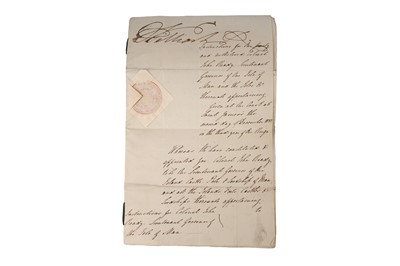 William R
Instructions for Our trusty
and wellbeloved Colonel
John Ready Lieutenant
Governor of Our Isle of
Man and the Isles &c
thereunto appertaining
Given at Our Court at
Saint James's the
day of December 1832
in the third year of Our Reign
Whereas We have constituted &
appointed you Colonel John Ready
to be the Lieutenant Governor of the
Island Castle Pele & Lordship of Man
and all the Islands Forts Castles &
Lordships thereunto appertaining
to
Instructions for Colonel John
Ready, Lieutenant Governor of
the Isle of Man